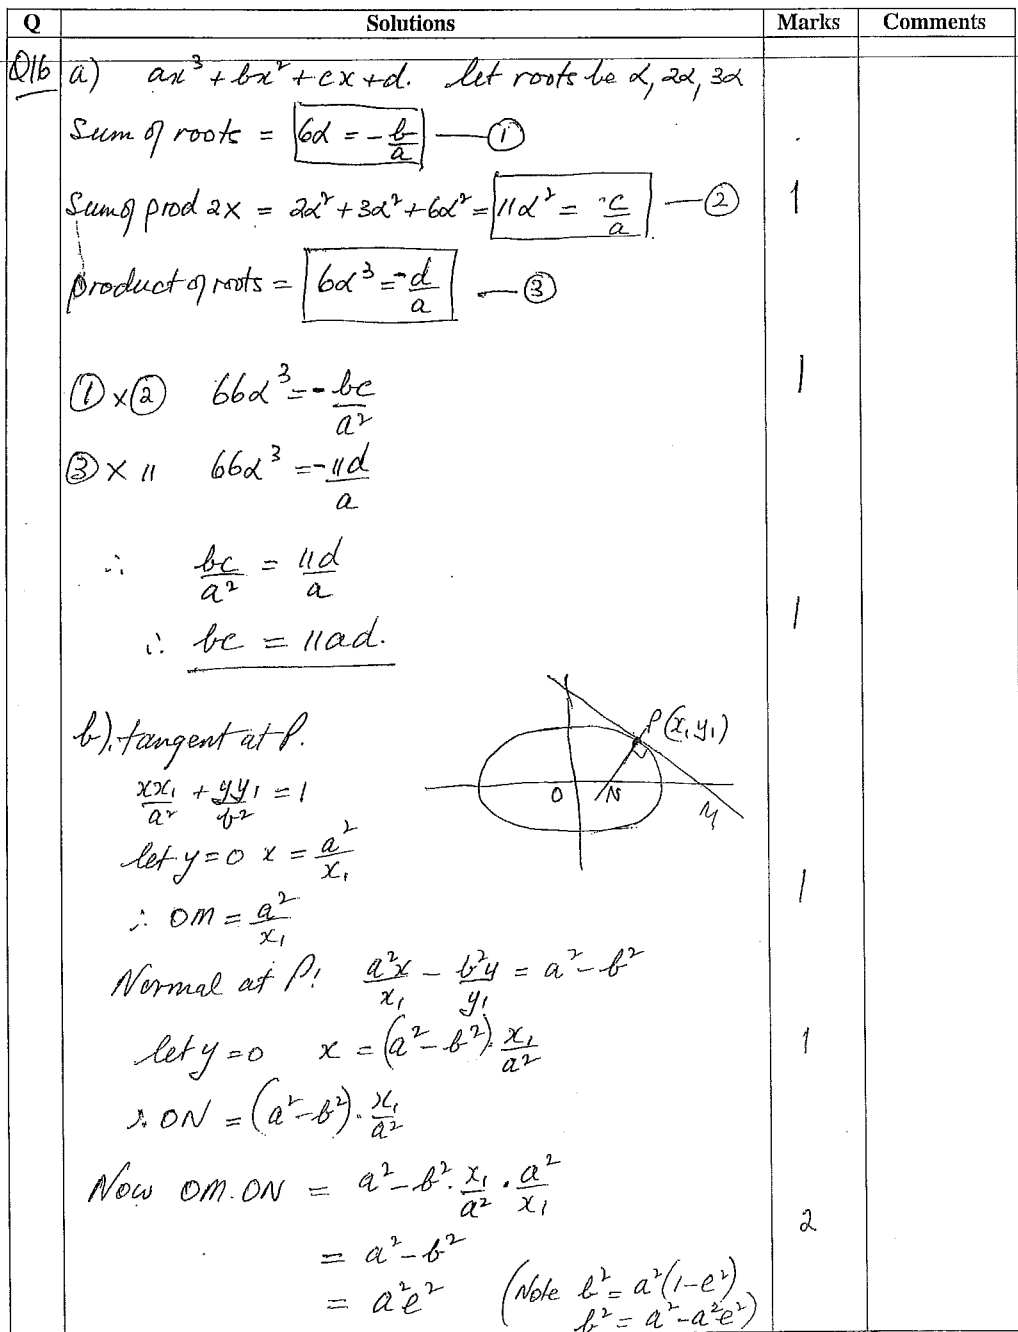 Q Solutions Marks Comments
Q16 a) ax³ + bx² + cx + d. let roots be α, 2α, 3α
Sum of roots = 6α = -b/a — ①
Sum of prod 2x = 2α² + 3α² + 6α² = 11α² = c/a — ② 1
product of roots = 6α³ = -d/a — ③
① × ② 66α³ = -bc/a² 1
③ × 11 66α³ = -11d/a
∴ bc/a² = 11d/a
∴ bc = 11ad. 1
b). tangent at P.
P(x₁ y₁)
xx₁/a² + yy₁/b² = 1
O N M
let y = 0 x = a²/x₁
∴ OM = a²/x₁ 1
Normal at P: a²x/x₁ - b²y/y₁ = a² - b²
let y = 0 x = (a² - b²). x₁/a² 1
∴ ON = (a² - b²). x₁/a²
Now OM.ON = a² - b². x₁/a² . a²/x₁
2
= a² - b²
= a²e² (Note b² = a²(1-e²)
b² = a² - a²e²)